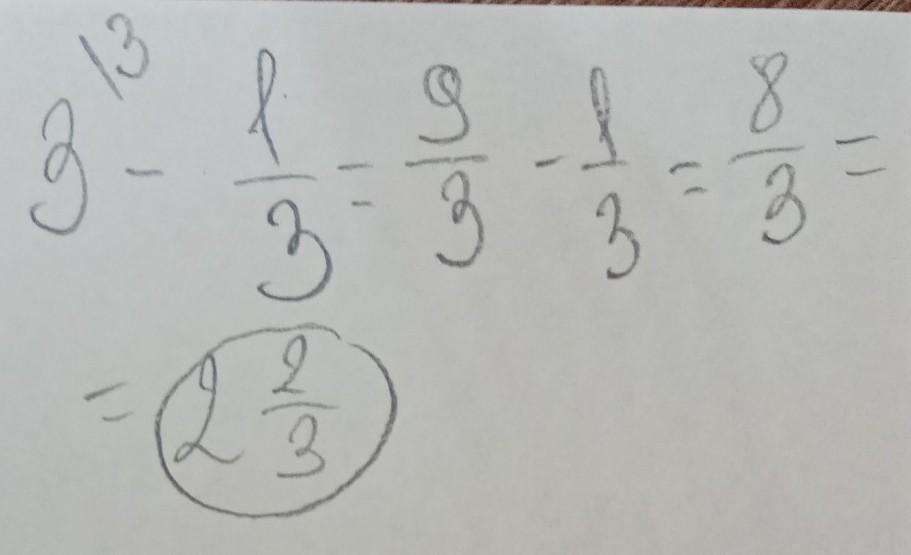 3\3 - 1/3 = 9/3 - 1/3 = 8/3 =
= 2 2/3